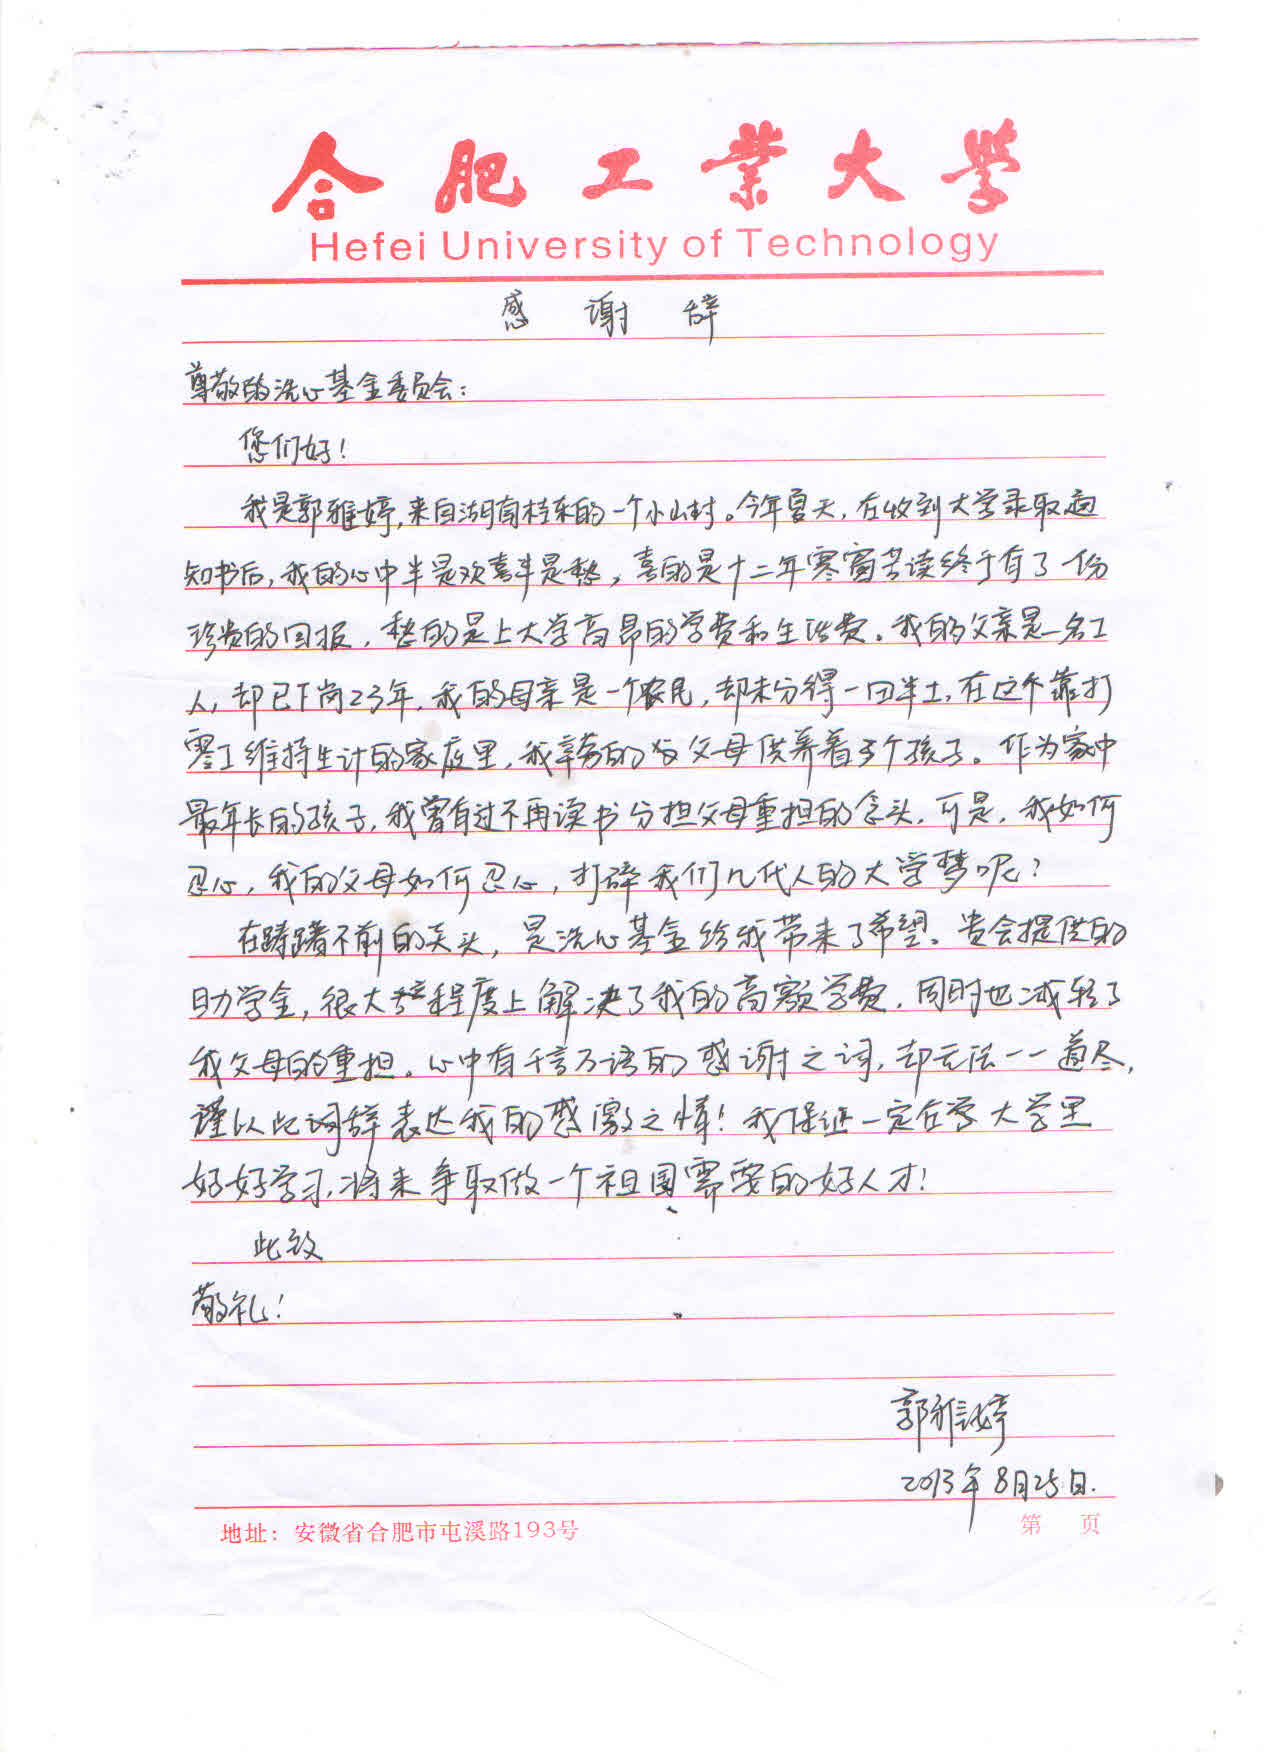 合肥工业大学
Hefei University of Technology
感 谢 辞
尊敬的洗心基金委员会：
您们好！
我是郭雅婷，来自湖南桂东的一个小山村。今年夏天，在收到大学录取通
知书后，我的心中半是欢喜半是愁，喜的是十二年寒窗苦读终于有了一份
珍贵的回报，愁的是上大学高昂的学费和生活费。我的父亲是一名工
人，却已下岗23年，我的母亲是一个农民，却未分得一田半土，在这个靠打
零工维持生计的家庭里，我辛劳的父母供养着3个孩子。作为家中
最年长的孩子，我曾有过不再读书分担父母重担的念头，可是，我如何
忍心，我的父母如何忍心，打碎我们几代人的大学梦呢？
在踌躇不前的关头，是洗心基金给我带来了希望。贵会提供的
助学金，很大程度上解决了我的高额学费，同时也减轻了
我父母的重担。心中有千言万语的感谢之词，却无法一一道尽，
谨以此词辞表达我的感激之情！我保证一定在大学里
好好学习，将来争取做一个祖国需要的好人才！
此致
敬礼！
郭雅婷
2013年8月25日.
地址：安徽省合肥市屯溪路193号 第 页